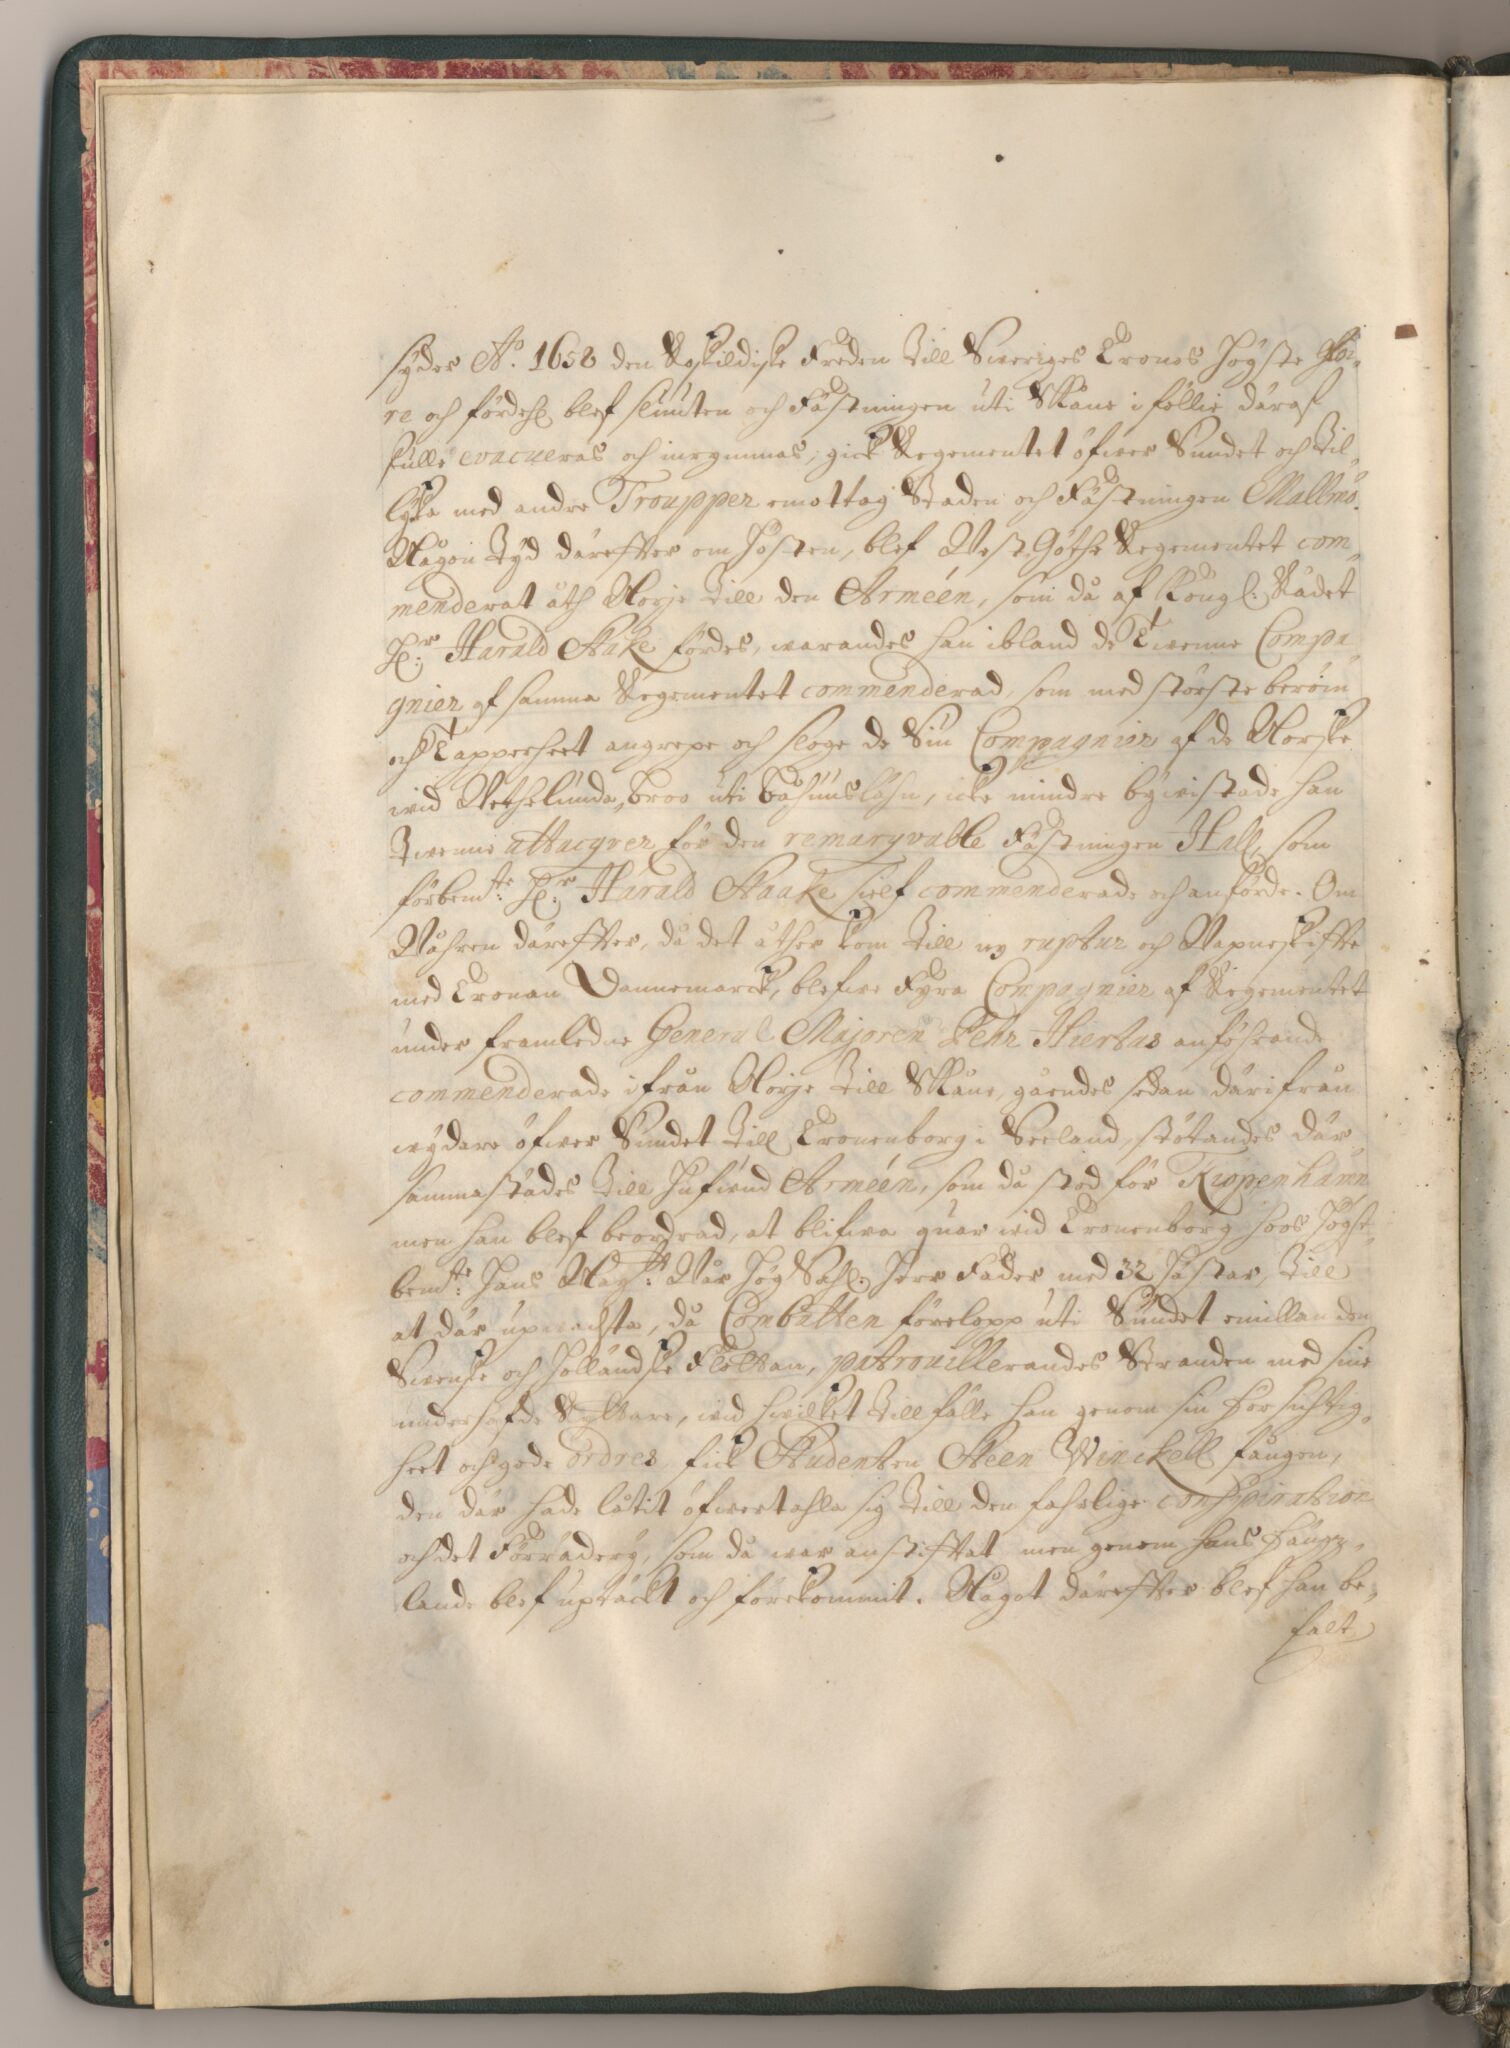 sijder A:o 1658 den Roskildiske Freden till Sweriges Cronos högste gloi-
re och fördehl blef sluuten och Fästningen uti Skåne i föllie däraf
skulle evacueras och inrymmas, gick Regementet öfwer Sundet och til-
lijka med andre Troupper emottog Staden och Fästningen Mallmö.
Någon tijd därefter om hösten, blef WestGöthe Regementet com-
menderat åth Norje till den Arméen, som då af Kongl. Rådet
H:r Harald Stake fördes, warandes han ibland de Twenne Compa-
gnier af samma Regementet commenderad, som med största beröm
och Tapperheet angrepo och sloge de Siu Compagnier af de Norske
wid Wethelunda, Broo uti Båhuuslähn, icke mindre bijwistade han
Twenne attacqver för den remarqvable Fästningen Hall, som
förbem:te H:r Harald Staake sielf commenderade och anförde. Om
Wåhren därefter, då det åther kom till ny ruptur och Wapneskifte
med Cronan Dannemarck, blefwe Fyra Compagnier af Regementet
under framledne General Majoren Pehr Hiertas anförande
commenderade ifrån Norje till Skåne, gåendes sedan därifrån
wijdare öfwer Sundet till Cronenborg i Seeland, stötandes där
sammastädes till Hufwud Arméen, som då stod för Kiöpenhamn
men han blef beordrad, at blifwa quar wid Cronenborg hoos högst-
bem:te Hans Maij:tt Wår Högsahl. Herr Fader, med 32 hästar, till
at där upwachta, då Combatten förelopp uti Sundet emillan den
Swenske och Holländske Flottan, patrouillerandes Stranden med sine
underhafde Ryttare, wid hwilket tillfälle han genom sin försichtig-
heet och gode ordres fick Studenten Steen Winckell fången,
den där hade låtit öfwertahla sig till den fahrlige conspiration
och det Förräderij, som då war anstifftat men genom hans
lande blef uptäckt och förekommit. Något därefter blef han be-
falt